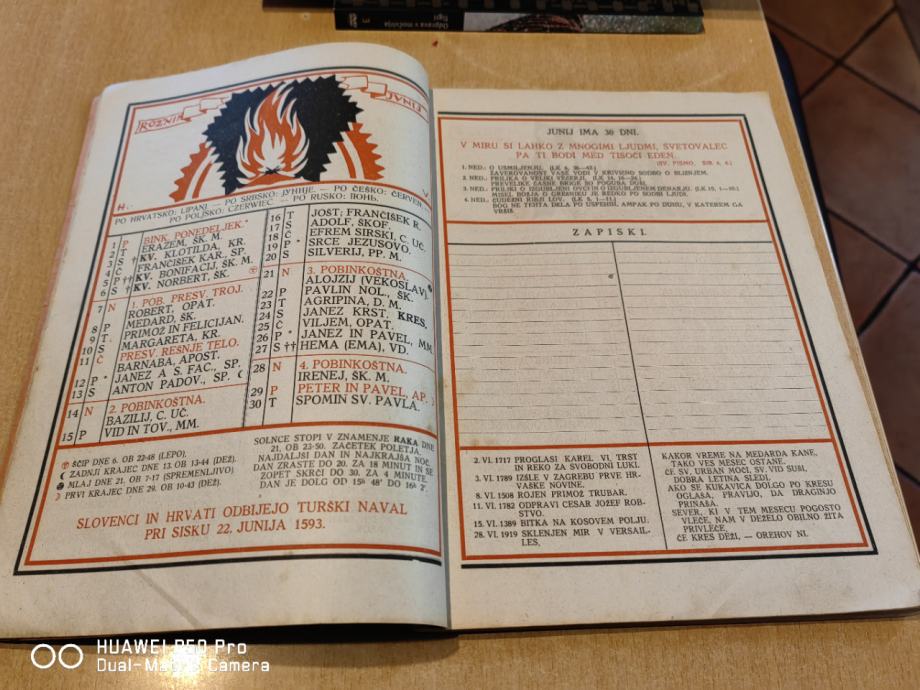 Odprava v močvirja
ROŽNIK
JUNIJ
PO HRVATSKO: LIPANJ — PO SRBSKO: ЈУНИЈЕ. — PO ČEŠKO: ČERVEN
PO POLJSKO: CZERWIEC. — PO RUSKO: ІЮНЬ.
1 P BINK. PONEDELJEK.
2 T ERAZEM, ŠK. M.
3 S † KV. KLOTILDA, KR.
4 Č FRANČIŠEK KAR., SP.
5 P †† KV. BONIFACIJ, ŠK. M.
6 S † KV. NORBERT, ŠK.
7 N 1. POB. PRESV. TROJ.
ROBERT, OPAT.
8 P MEDARD, ŠK.
9 T PRIMOŽ IN FELICIJAN.
10 S MARGARETA, KR.
11 Č PRESV. REŠNJE TELO.
BARNABA, APOST.
12 P * JANEZ A S. FAC., SP.
13 S ANTON PADOV., SP.
14 N 2. POBINKOŠTNA.
BAZILIJ, C. UČ.
15 P VID IN TOV., MM.
16 T JOŠT; FRANČIŠEK R.
17 S ADOLF, ŠKOF.
18 Č EFREM SIRSKI, C. UČ.
19 P * SRCE JEZUSOVO.
20 S SILVERIJ, PP. M.
21 N 3. POBINKOŠTNA.
ALOJZIJ (VEKOSLAV).
22 P PAVLIN NOL., ŠK.
23 T AGRIPINA, D. M.
24 S JANEZ KRST. KRES.
25 Č VILJEM, OPAT.
26 P * JANEZ IN PAVEL, MM
27 S †† HEMA (EMA), VD.
28 N 4. POBINKOŠTNA.
IRENEJ, ŠK. M.
29 P PETER IN PAVEL, AP.
30 T SPOMIN SV. PAVLA.
ŠČIP DNE 6. OB 22-48 (LEPO).
ZADNJI KRAJEC DNE 13. OB 13-44 (DEŽ).
MLAJ DNE 21. OB 7-17 (SPREMENLJIVO)
PRVI KRAJEC DNE 29. OB 10-43 (DEŽ).
SOLNCE STOPI V ZNAMENJE RAKA DNE
21, OB 23-50. ZAČETEK POLETJA.
NAJDALJŠI DAN IN NAJKRAJŠA NOČ.
DAN ZRASTE DO 20. ZA 18 MINUT IN SE
ZOPET SKRČI DO 30. ZA 4 MINUTE.
DAN JE DOLG OD 15ʰ 48' DO 16ʰ 2'.
SLOVENCI IN HRVATI ODBIJEJO TURŠKI NAVAL
PRI SISKU 22. JUNIJA 1593.
JUNIJ IMA 30 DNI.
V MIRU SI LAHKO Z MNOGIMI LJUDMI, SVETOVALEC
PA TI BODI MED TISOČI EDEN.
(SV. PISMO, SIR 6, 6.)
1. NED.: O USMILJENJU. (LK 6, 36—42.)
ZAVEROVANOST VASE VODI V KRIVIČNO SODBO O BLIŽNJEM.
2. NED.: PRILIKA O VELIKI VEČERJI. (LK 14, 16—24.)
PREVELIKE ČASNE BRIGE SO POGUBA DUŠ.
3. NED.: PRILIKI O IZGUBLJENI OVCI IN O IZGUBLJENEM DENARJU. (LK 15, 1—10.)
MISEL BOLJA O GREŠNIKU JE REDKO PO SODBI LJUDI.
4. NED.: ČUDEŽNI RIBJI LOV. (LK 5, 1—11.)
BOG NE TEHTA DELA PO USPEHIH, AMPAK PO DUHU, V KATEREM GA
VRŠIŠ.
ZAPISKI.
2. VI. 1717 PROGLASI KAREL VI. TRST
IN REKO ZA SVOBODNI LUKI.
3. VI. 1789 IZŠLE V ZAGREBU PRVE HR-
VAŠKE NOVINE.
8. VI. 1508 ROJEN PRIMOŽ TRUBAR.
11. VI. 1782 ODPRAVI CESAR JOŽEF ROB-
STVO.
15. VI. 1389 BITKA NA KOSOVEM POLJU.
28. VI. 1919 SKLENJEN MIR V VERSAIL-
LES.
KAKOR VREME NA MEDARDA KANE,
TAKO VES MESEC OSTANE.
ČE SV. URBAN NOČI, SV. VID SUŠI,
DOBRA LETINA SLEDI.
AKO SE KUKAVICA DOLGO PO KRESU
OGLAŠA, PRAVIJO, DA DRAGINJO
PRINAŠA.
SEVER, KI V TEM MESECU POGOSTO
VLEČE, NAM V DEŽELO OBILNO ŽITA
PRIVLEČE.
ČE KRES DEŽI, — OREHOV NI.
HUAWEI P50 Pro
Dual-Matrix Camera